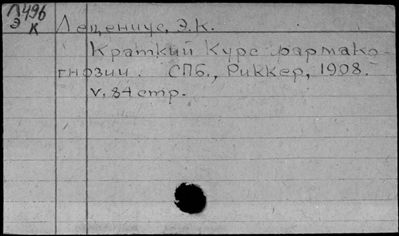 Л496
Э
К
Леценниус, Э.К.
Краткий курс фармако-
гнозии. СПб., Риккер, 1908.
V, 84 стр.